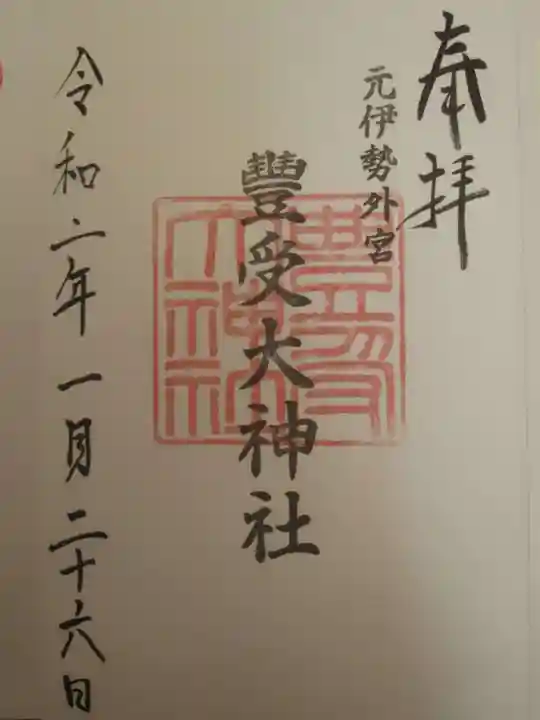 奉拝
元伊勢外宮
豊受大神社
豐受大神社
令和二年一月二十六日